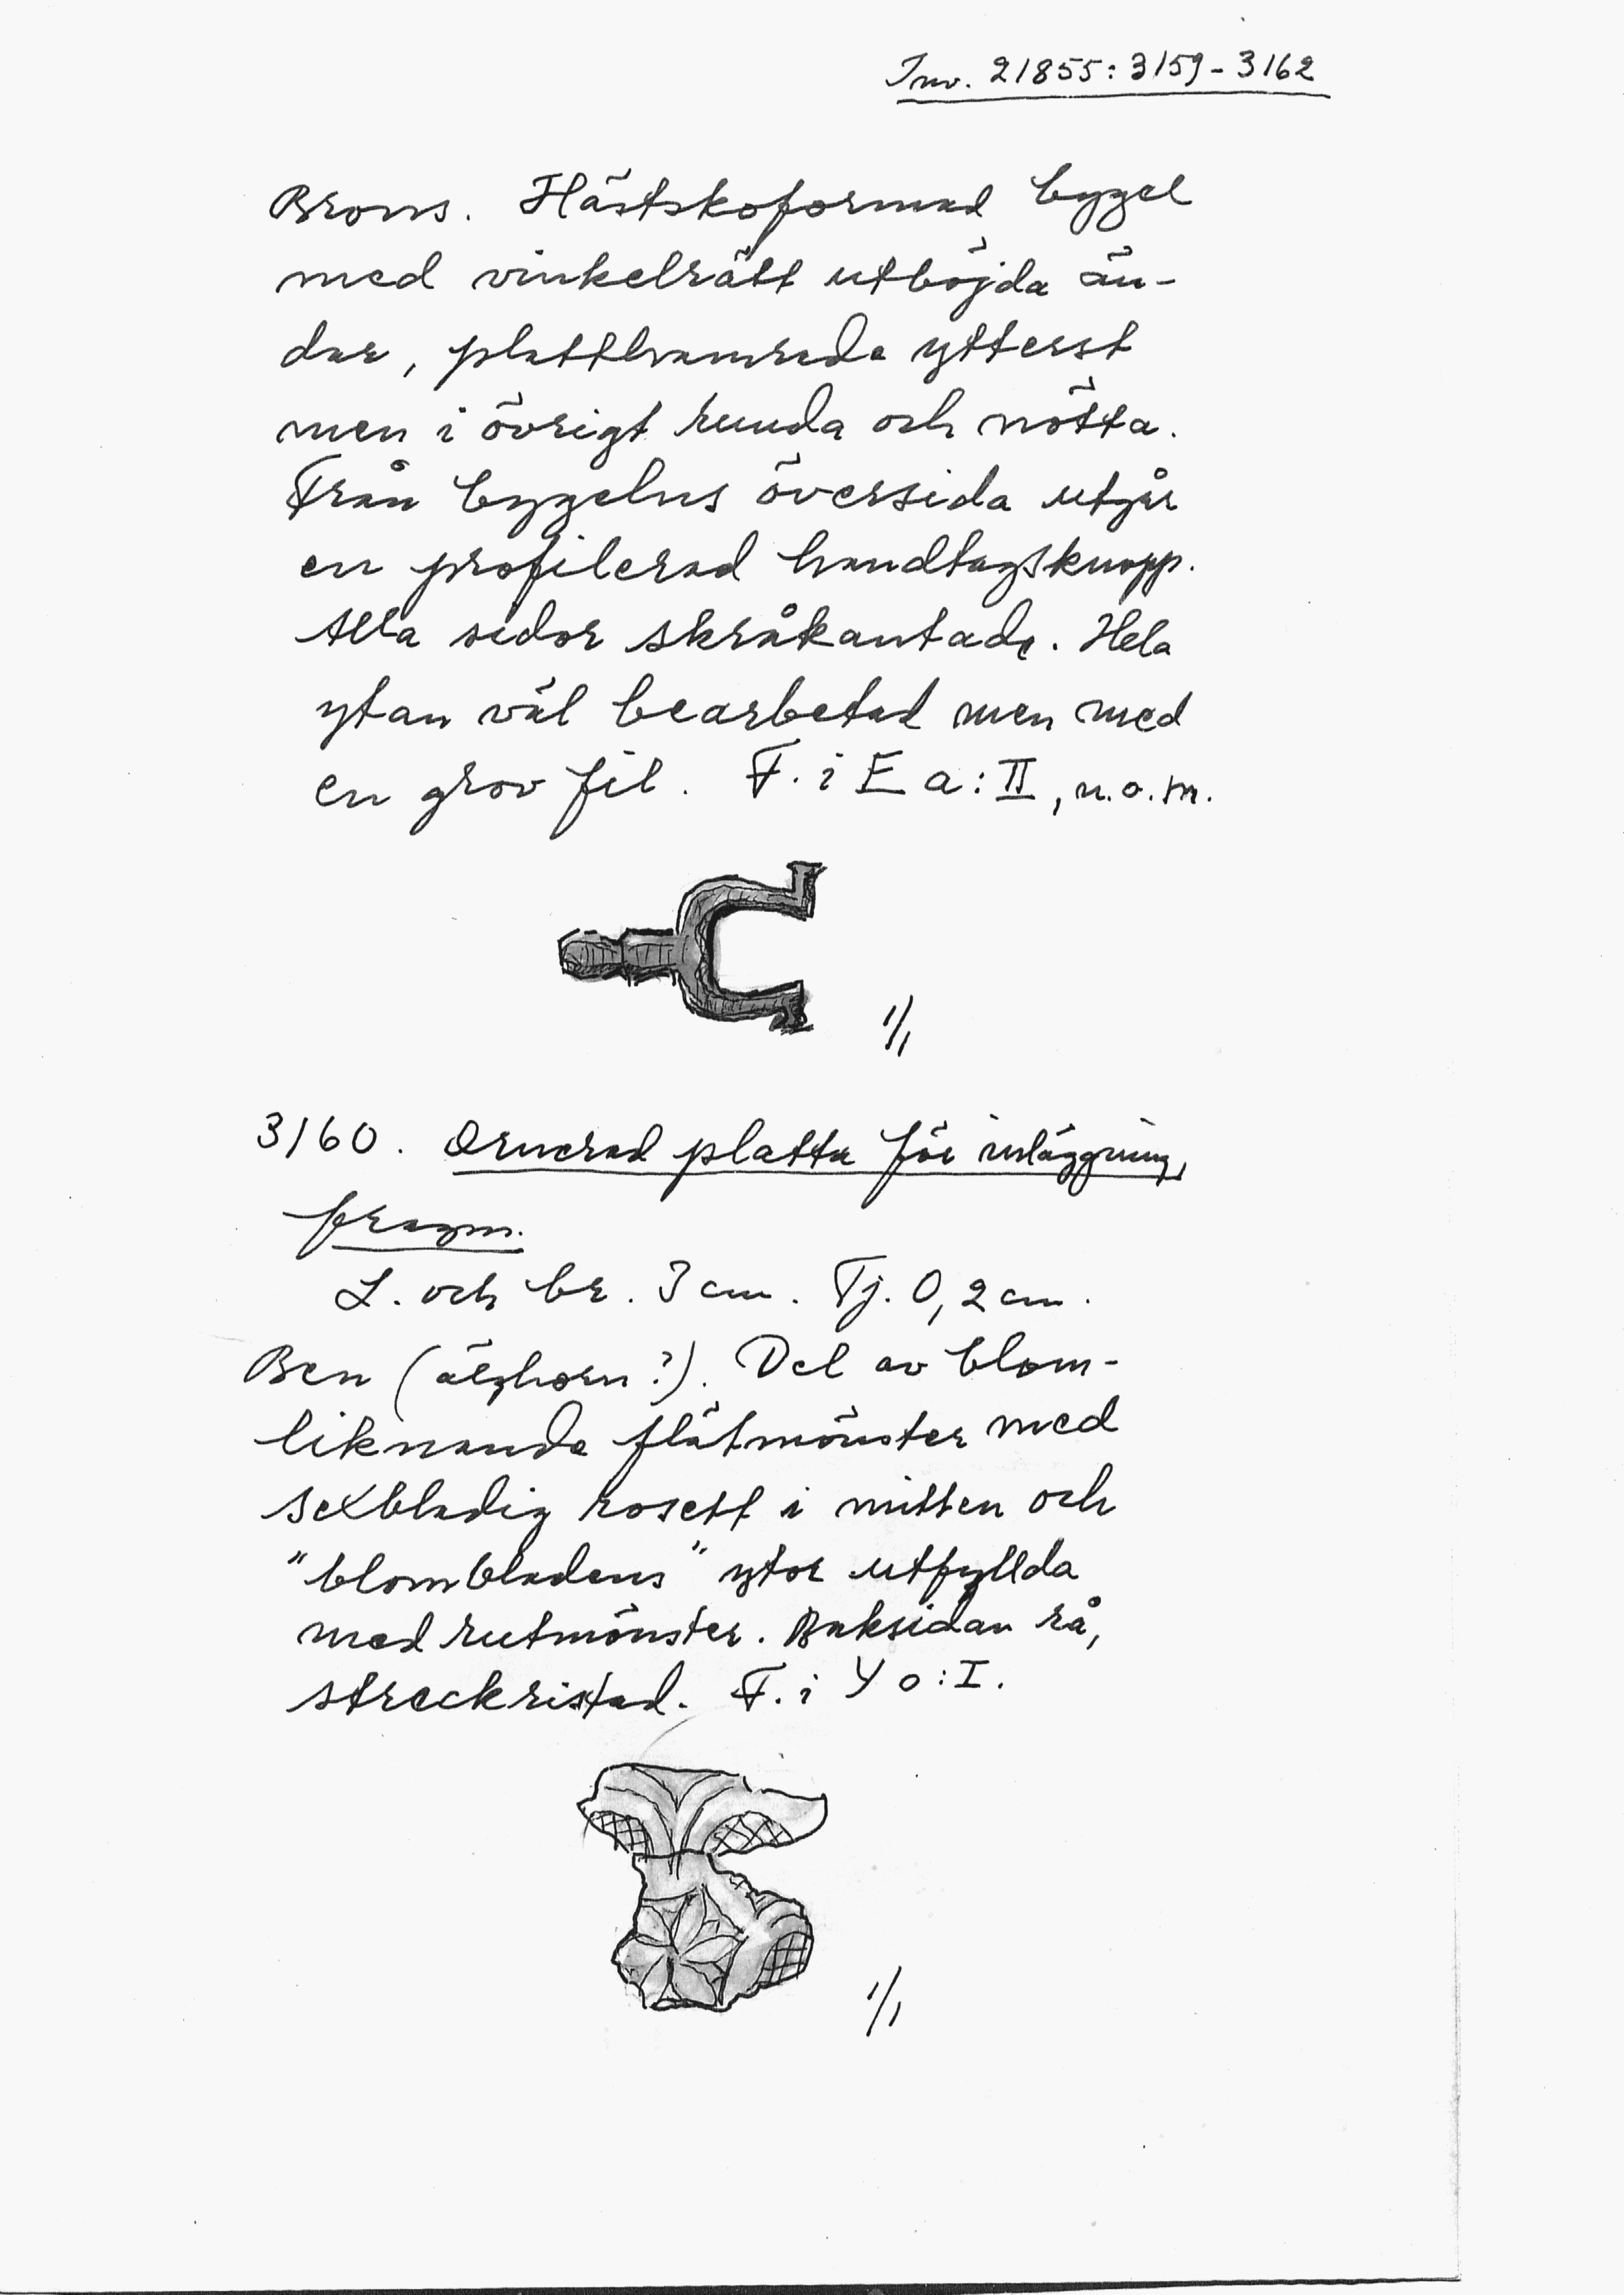 Inv. 21855:3159-3162
Brons. Hästskoformad bygel
med vinkelrätt utböjda än-
dar, platthamrade ytterst
men i övrigt runda och nötta.
Från bygelns översida utgår
en profilerad handtagsknopp.
Alla sidor skråkantade. Hela
ytan väl bearbetad men med
en grov fil. F. i E a:II, n.o.m.
1/1
3160. Ornerad platta för inläggning,
fragm.
L. och br. 3 cm. Tj. 0,2 cm.
Ben (älghorn?). Del av blom-
liknande flätmönster med
sexbladig rosett i mitten och
"blombladens" ytor utfyllda
med rutmönster. Baksidan rå,
streckristad. F. i Y o:I.
1/1